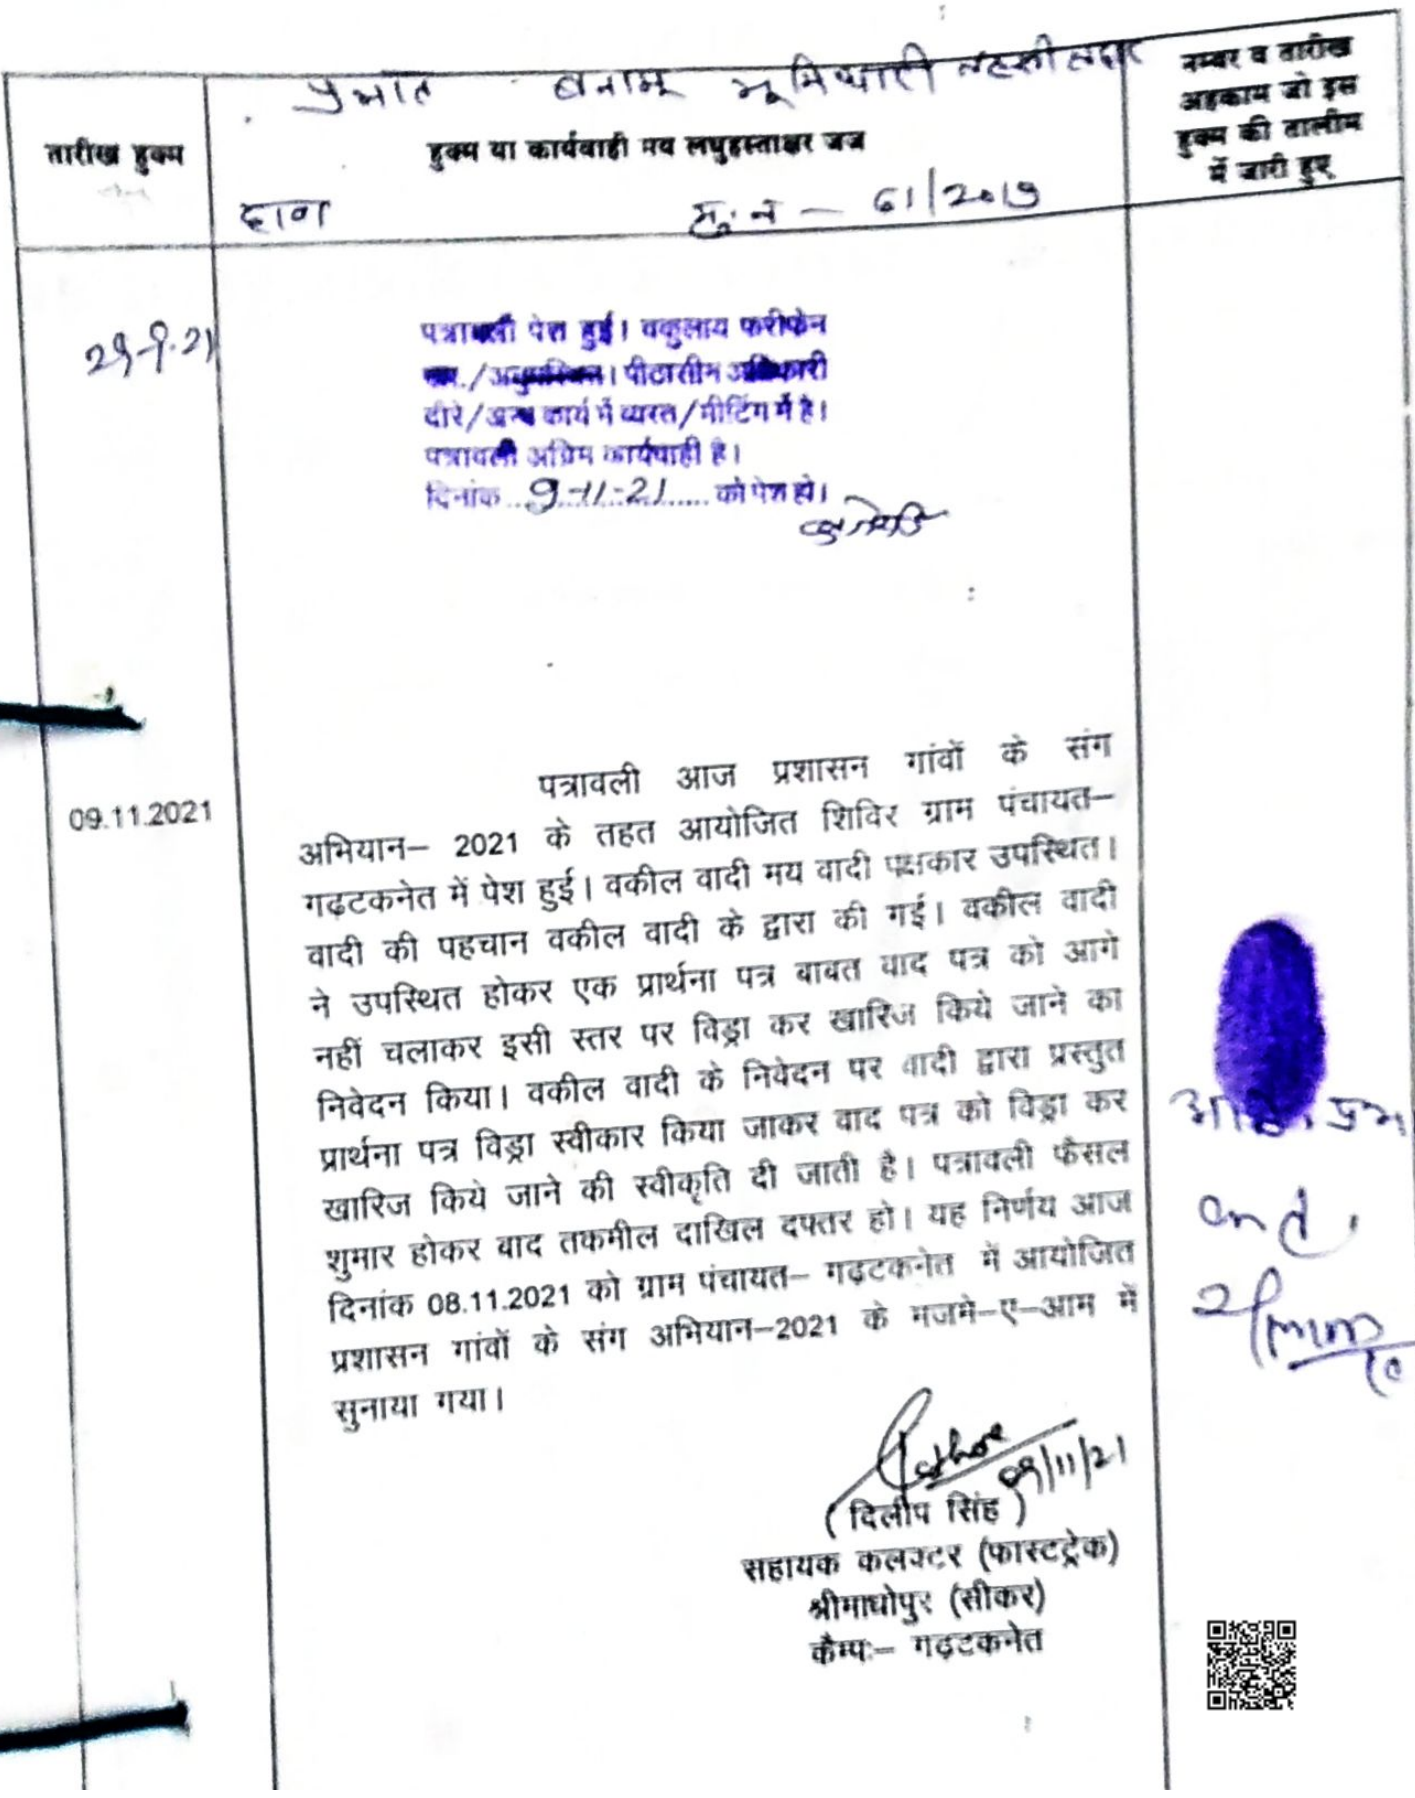 प्रभात बनाम भूमिधारी तहसीलदार
नम्बर व तारीख
अहकाम जो इस
हुक्म की तालीम
में जारी हुए
तारीख हुक्म
हुक्म या कार्यवाही मय लघुहस्ताक्षर जज
दावा मु.न - 61/2017
29-9-21
पत्रावली पेश हुई। वकुलाय फरीकेन
/अनुपस्थित। पीठासीन अधिकारी
दौरे/अन्य कार्य में व्यस्त/मीटिंग में है।
पत्रावली अग्रिम कार्यवाही है।
दिनांक...9-11-21......को पेश हो।
09.11.2021
पत्रावली आज प्रशासन गांवों के संग
अभियान– 2021 के तहत आयोजित शिविर ग्राम पंचायत–
गढ़टकनेत में पेश हुई। वकील वादी मय वादी पक्षकार उपस्थित।
वादी की पहचान वकील वादी के द्वारा की गई। वकील वादी
ने उपस्थित होकर एक प्रार्थना पत्र बाबत वाद पत्र को आगे
नहीं चलाकर इसी स्तर पर विड्रा कर खारिज किये जाने का
निवेदन किया। वकील वादी के निवेदन पर वादी द्वारा प्रस्तुत
प्रार्थना पत्र विड्रा स्वीकार किया जाकर वाद पत्र को विड्रा कर
खारिज किये जाने की स्वीकृति दी जाती है। पत्रावली फैसल
शुमार होकर बाद तकमील दाखिल दफ्तर हो। यह निर्णय आज
दिनांक 08.11.2021 को ग्राम पंचायत– गढ़टकनेत में आयोजित
प्रशासन गांवों के संग अभियान–2021 के मजमे–ए–आम में
सुनाया गया।
09/11/21
(दिलीप सिंह)
सहायक कलक्टर (फास्टट्रेक)
श्रीमाधोपुर (सीकर)
कैम्पः– गढ़टकनेत